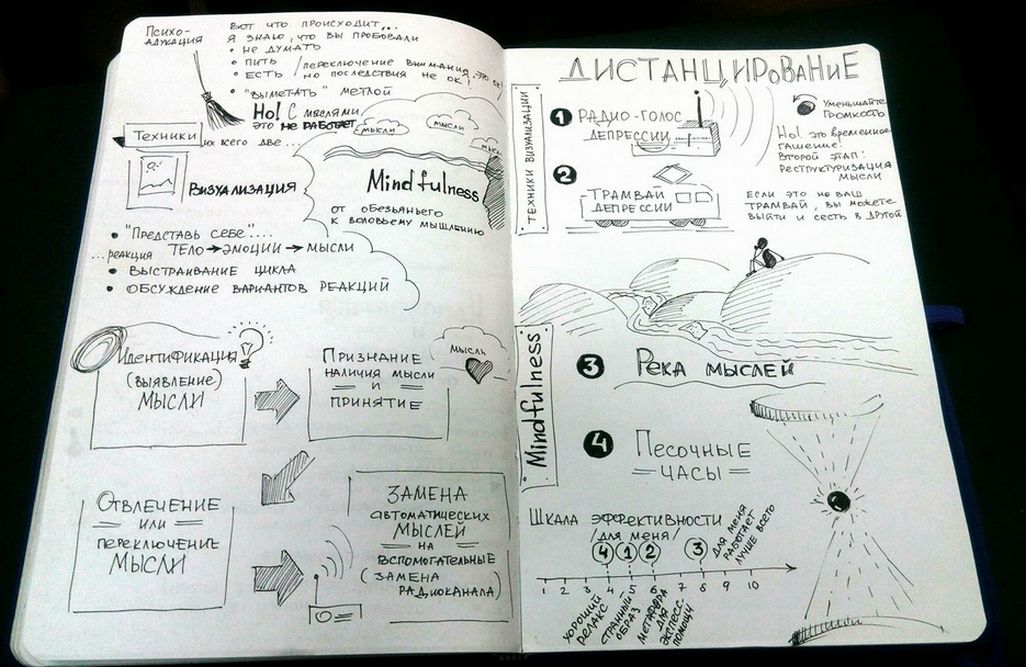 Психо-
адукация
Вот что происходит...
Я знаю, что вы пробовали
• не думать
• пить
• есть
/переключение внимания, это ок!
/но последствия не ок!
• "выметать" метлой
Но! С мыслями
это не работает
Техники
их всего две...
мысли
мысли
мысли
Визуализация
Mindfulness
от обезьяньего
к воловьему мышлению
• "Представь себе"...
...реакция тело → эмоции → мысли
• выстраивание цикла
• обсуждение вариантов реакций
Идентификация
(выявление)
мысли
Признание
наличия мысли
и
принятие
мысль
Отвлечение
или
переключение
мысли
Замена
автоматических
мыслей
на
вспомогательные
(замена
радиоканала)
Дистанцирование
Техники визуализации
1 Радио-голос
депрессии
Уменьшайте
громкость
Но! это временное
гашение!
Второй этап:
реструктуризация
мысли
2 Трамвай
депрессии
Если это не ваш
трамвай, вы можете
выйти и сесть в другой
Mindfulness
3 Река мыслей
4 Песочные
часы
Шкала эффективности
/для меня/
4 1 2 3
для меня
работает
лучше всего
1 2 3 4 5 6 7 8 9 10
хороший
релакс
странный
образ
метафора
для
экспресс.
помощи